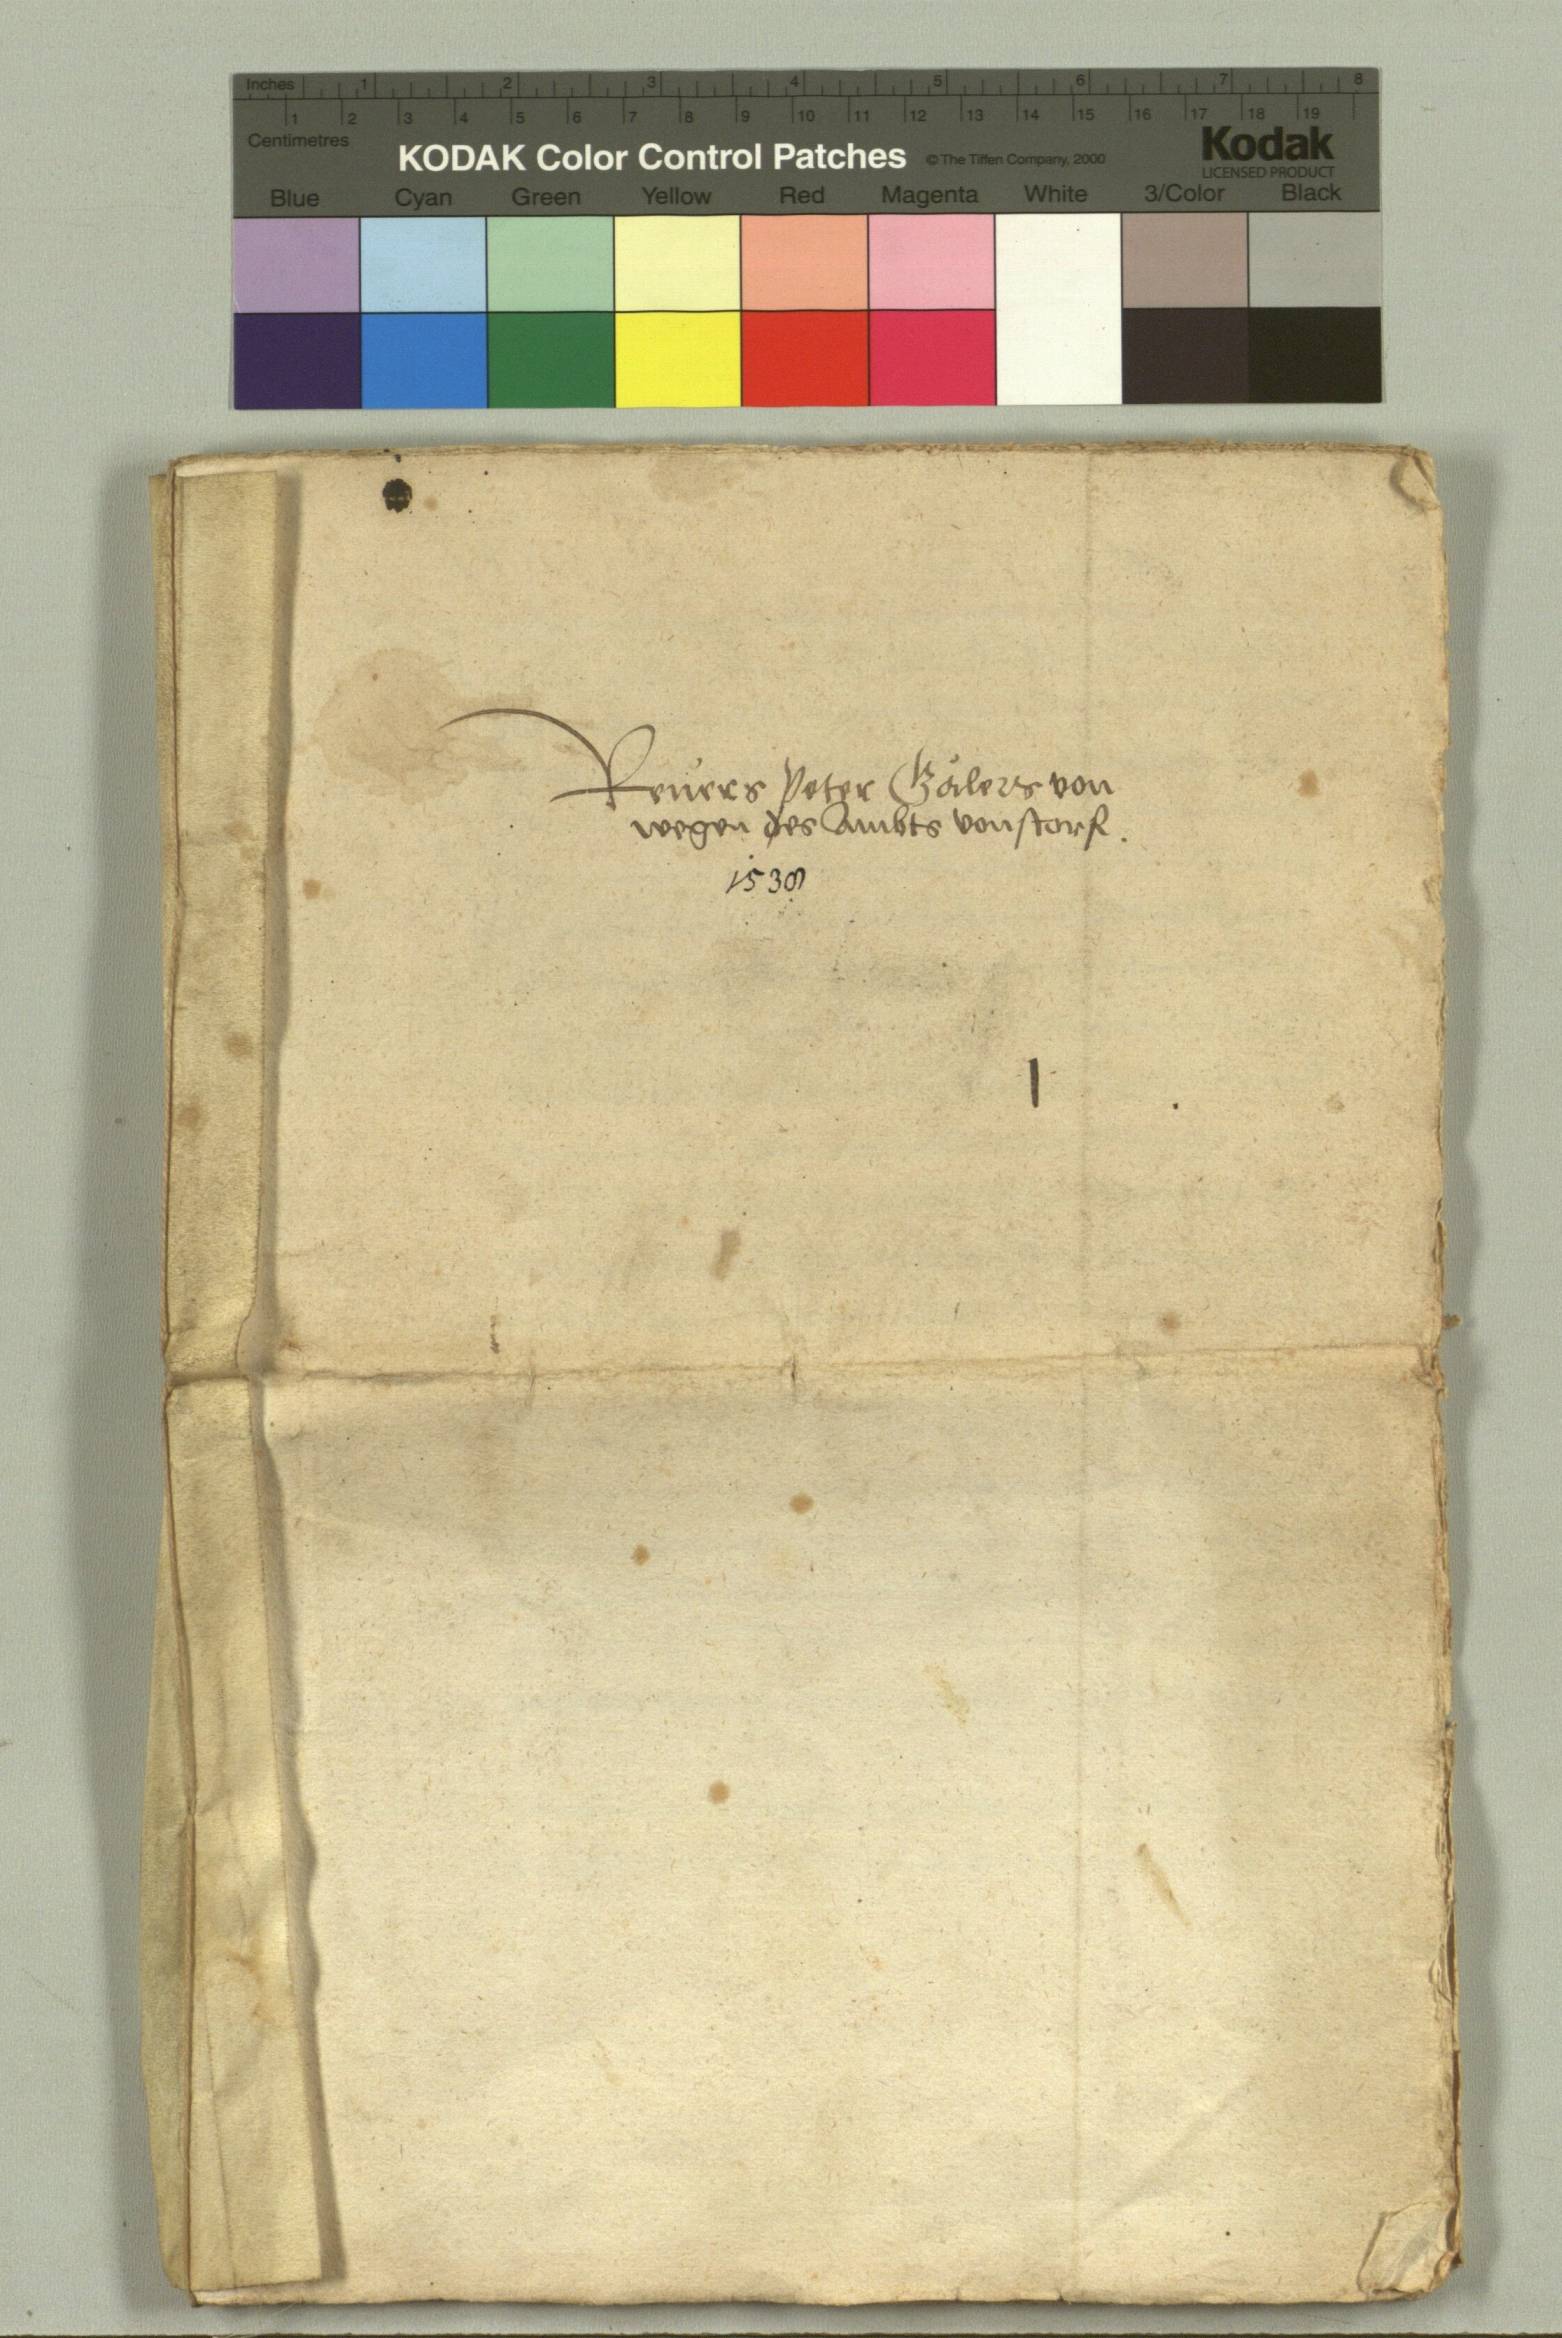 Inches 1 2 3 4 5 6 7 8
1 2 3 4 5 6 7 8 9 10 11 12 13 14 15 16 17 18 19
Centimetres
KODAK Color Control Patches © The Tiffen Company, 2000 Kodak
LICENSED PRODUCT
Blue Cyan Green Yellow Red Magenta White 3/Color Black
Reuers Peter von
wegen des Ambts vonstorf.
1538